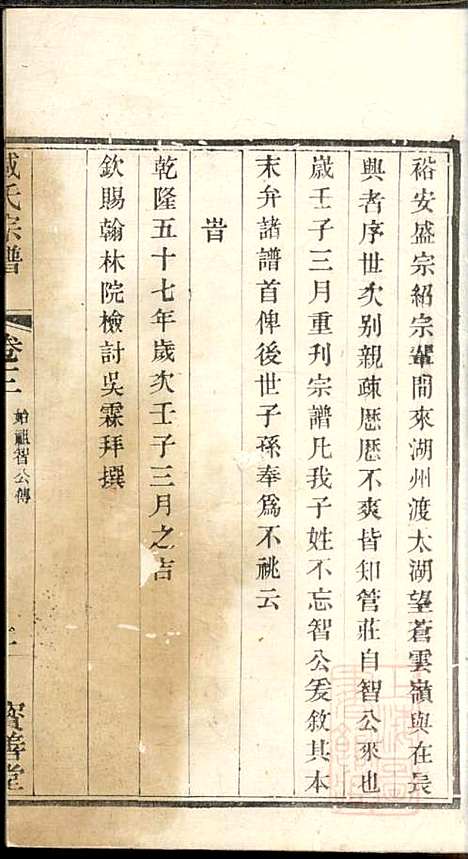 裕安盛宗紹宗輩間來湖州渡太湖望蒼雲嶺與在長
興者序世次别親疎歷歷不爽皆知管莊自智公來也
歲壬子三月重刊宗譜凡我子姓不忘智公爰敘其本
末弁諸譜首俾後世子孫奉爲不祧云
旹
乾隆五十七年歲次壬子三月之吉
欽賜翰林院檢討吳霖拜撰
臧氏宗譜
卷三
始祖智公傳
寳善堂